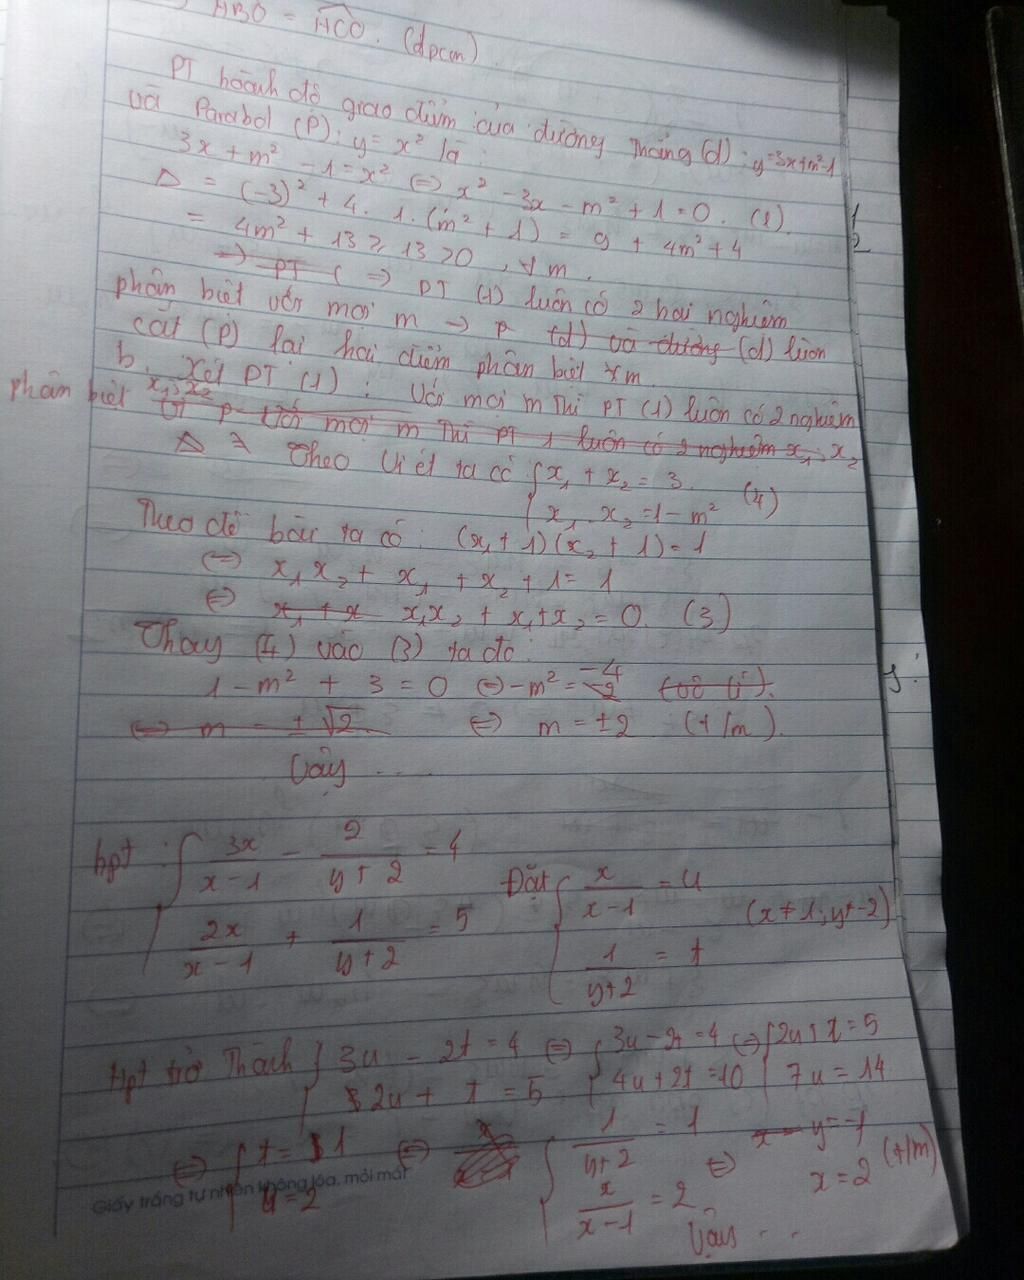 HBO = HCO. (đpcm)
PT hoành độ giao điểm của đường thẳng (d): y=3x+m²-1
và Parabol (P): y = x² là:
3x + m² - 1 = x² (=) x² - 3x - m² + 1 = 0. (1)
Δ = (-3)² + 4. 1. (m² + 1) = 9 + 4m² + 4
= 4m² + 13 ≥ 13 > 0, ∀ m.
=) PT ( =) PT (1) luôn có 2 hai nghiệm
phân biệt với mọi m → P (d) và đường (d) luôn
cắt (P) tại hai điểm phân biệt ∀m
b. Xét PT (1): Với mọi m thì PT (1) luôn có 2 nghiệm
phân biệt x₁, x₂
với mọi m thì PT 1 luôn có 2 nghiệm x₁; x₂
Theo Viét ta có { x₁ + x₂ = 3
x₁. x₂ = 1 - m² (4)
Theo đề bài ta có: (x₁ + 1)(x₂ + 1) = 1
(=) x₁x₂ + x₁ + x₂ + 1 = 1
(=) x₁ + x x₁x₂ + x₁ + x₂ = 0. (3)
Thay (4) vào (3) ta đc:
1 - m² + 3 = 0 (=) -m² = -4 -2 (vô lí).
(=) m = ±√2 (=) m = ±2 (t/m).
Vậy ...
hpt: { 3x/(x-1) - 2/(y+2) = 4
2x/(x-1) + 1/(y+2) = 5
Đặt { x/(x-1) = u
1/(y+2) = t (x≠1; y≠-2)
Hpt trở thành { 3u - 2t = 4 (=) { 3u - 2t = 4 (=) { 2u + t = 5
2u + t = 5 4u + 2t = 10 7u = 14
(=) { t = 1 (=) { 1/(y+2) = 1 (=) y = -1
u = 2 x/(x-1) = 2 x = 2 (t/m)
Giấy trắng tự nhiên không lóa, mỏi mắt
Vậy ...